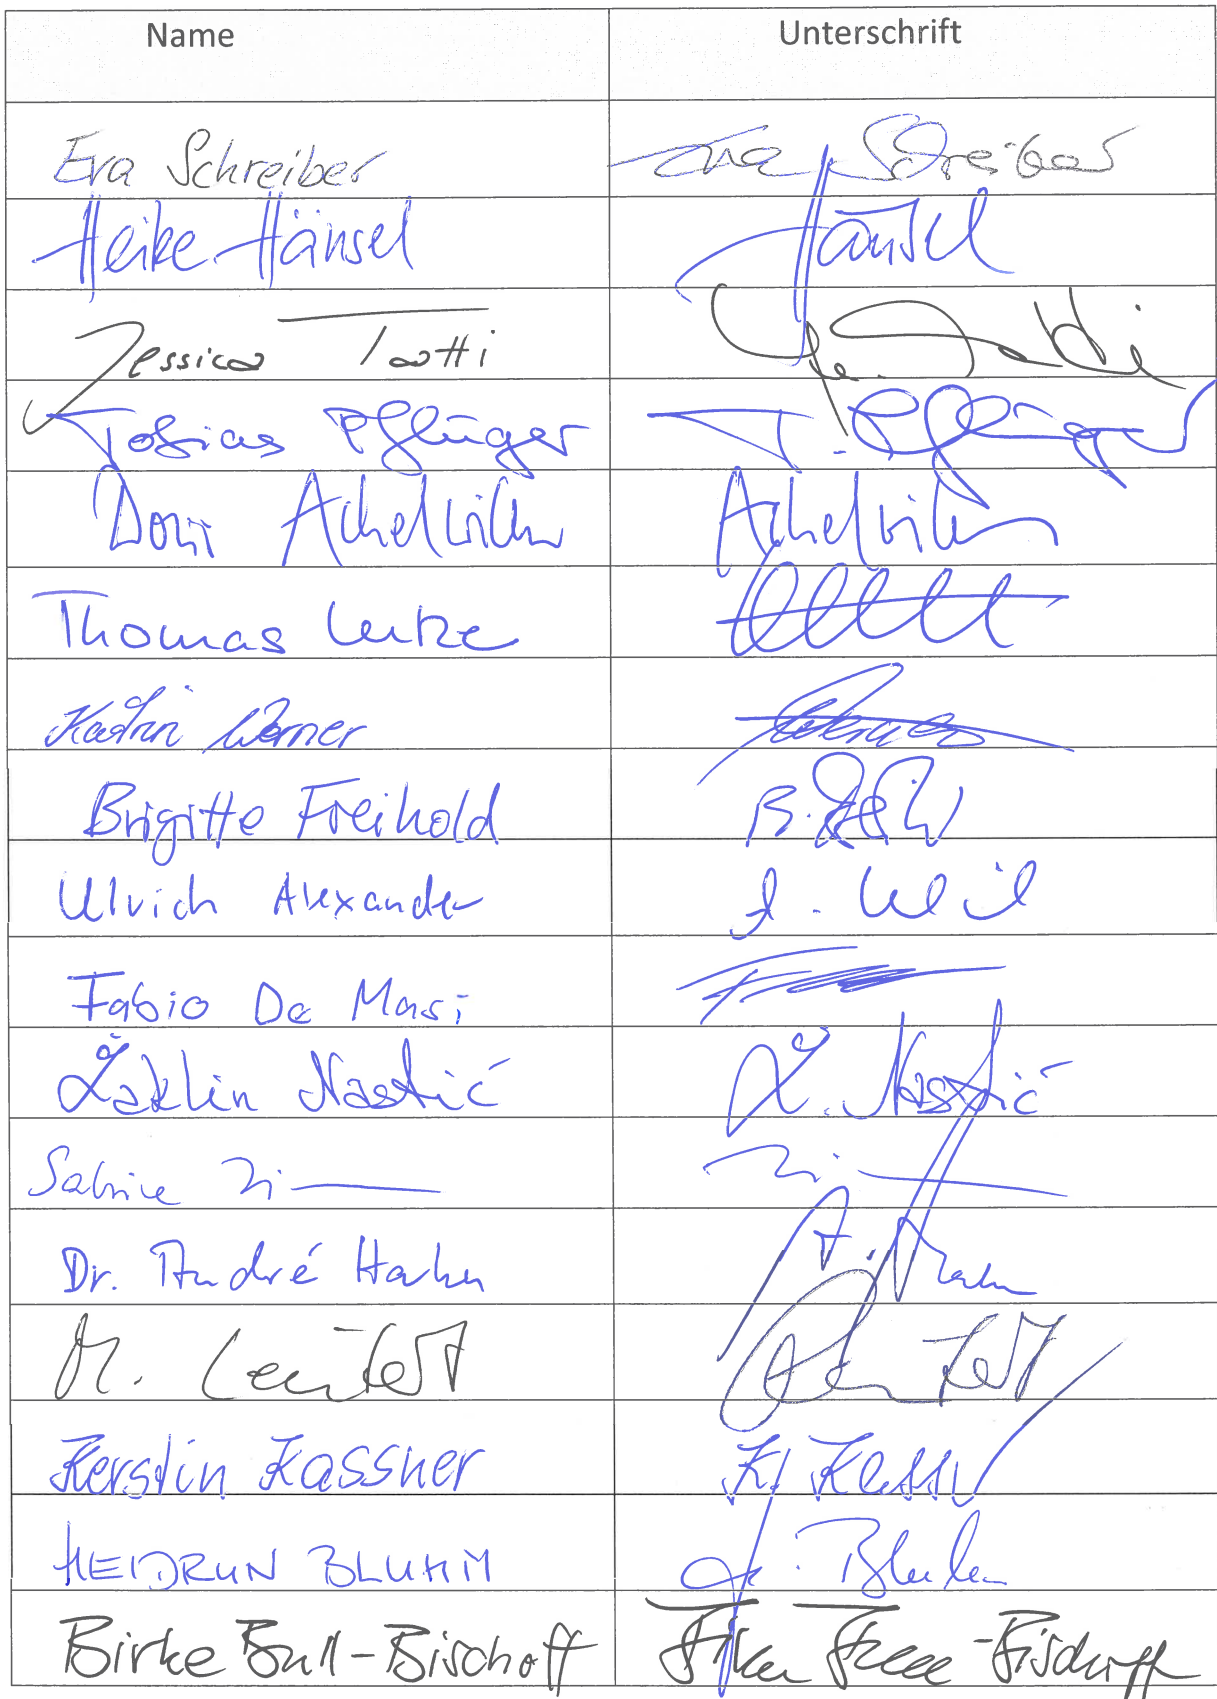 Name Unterschrift
Eva Schreiber Eva Schreiber
Heike Hänsel Hänsel
Jessica Tatti Je. Tatti
Tobias Pflüger T. Pflüger
Doris Achelwilm Achelwilm
Thomas Lutze
Katrin Werner Werner
Brigitte Freihold B.
Ulrich Alexander
Fabio De Masi
Žaklin Nastić Ž. Nastić
Sabine Zi
Dr. André Hahn A. Hahn
M. Leutert Leutert
Kerstin Kassner K. Kassner
HEIDRUN BLUHM H. Bluhm
Birke Bull-Bischoff Birke Bull-Bischoff